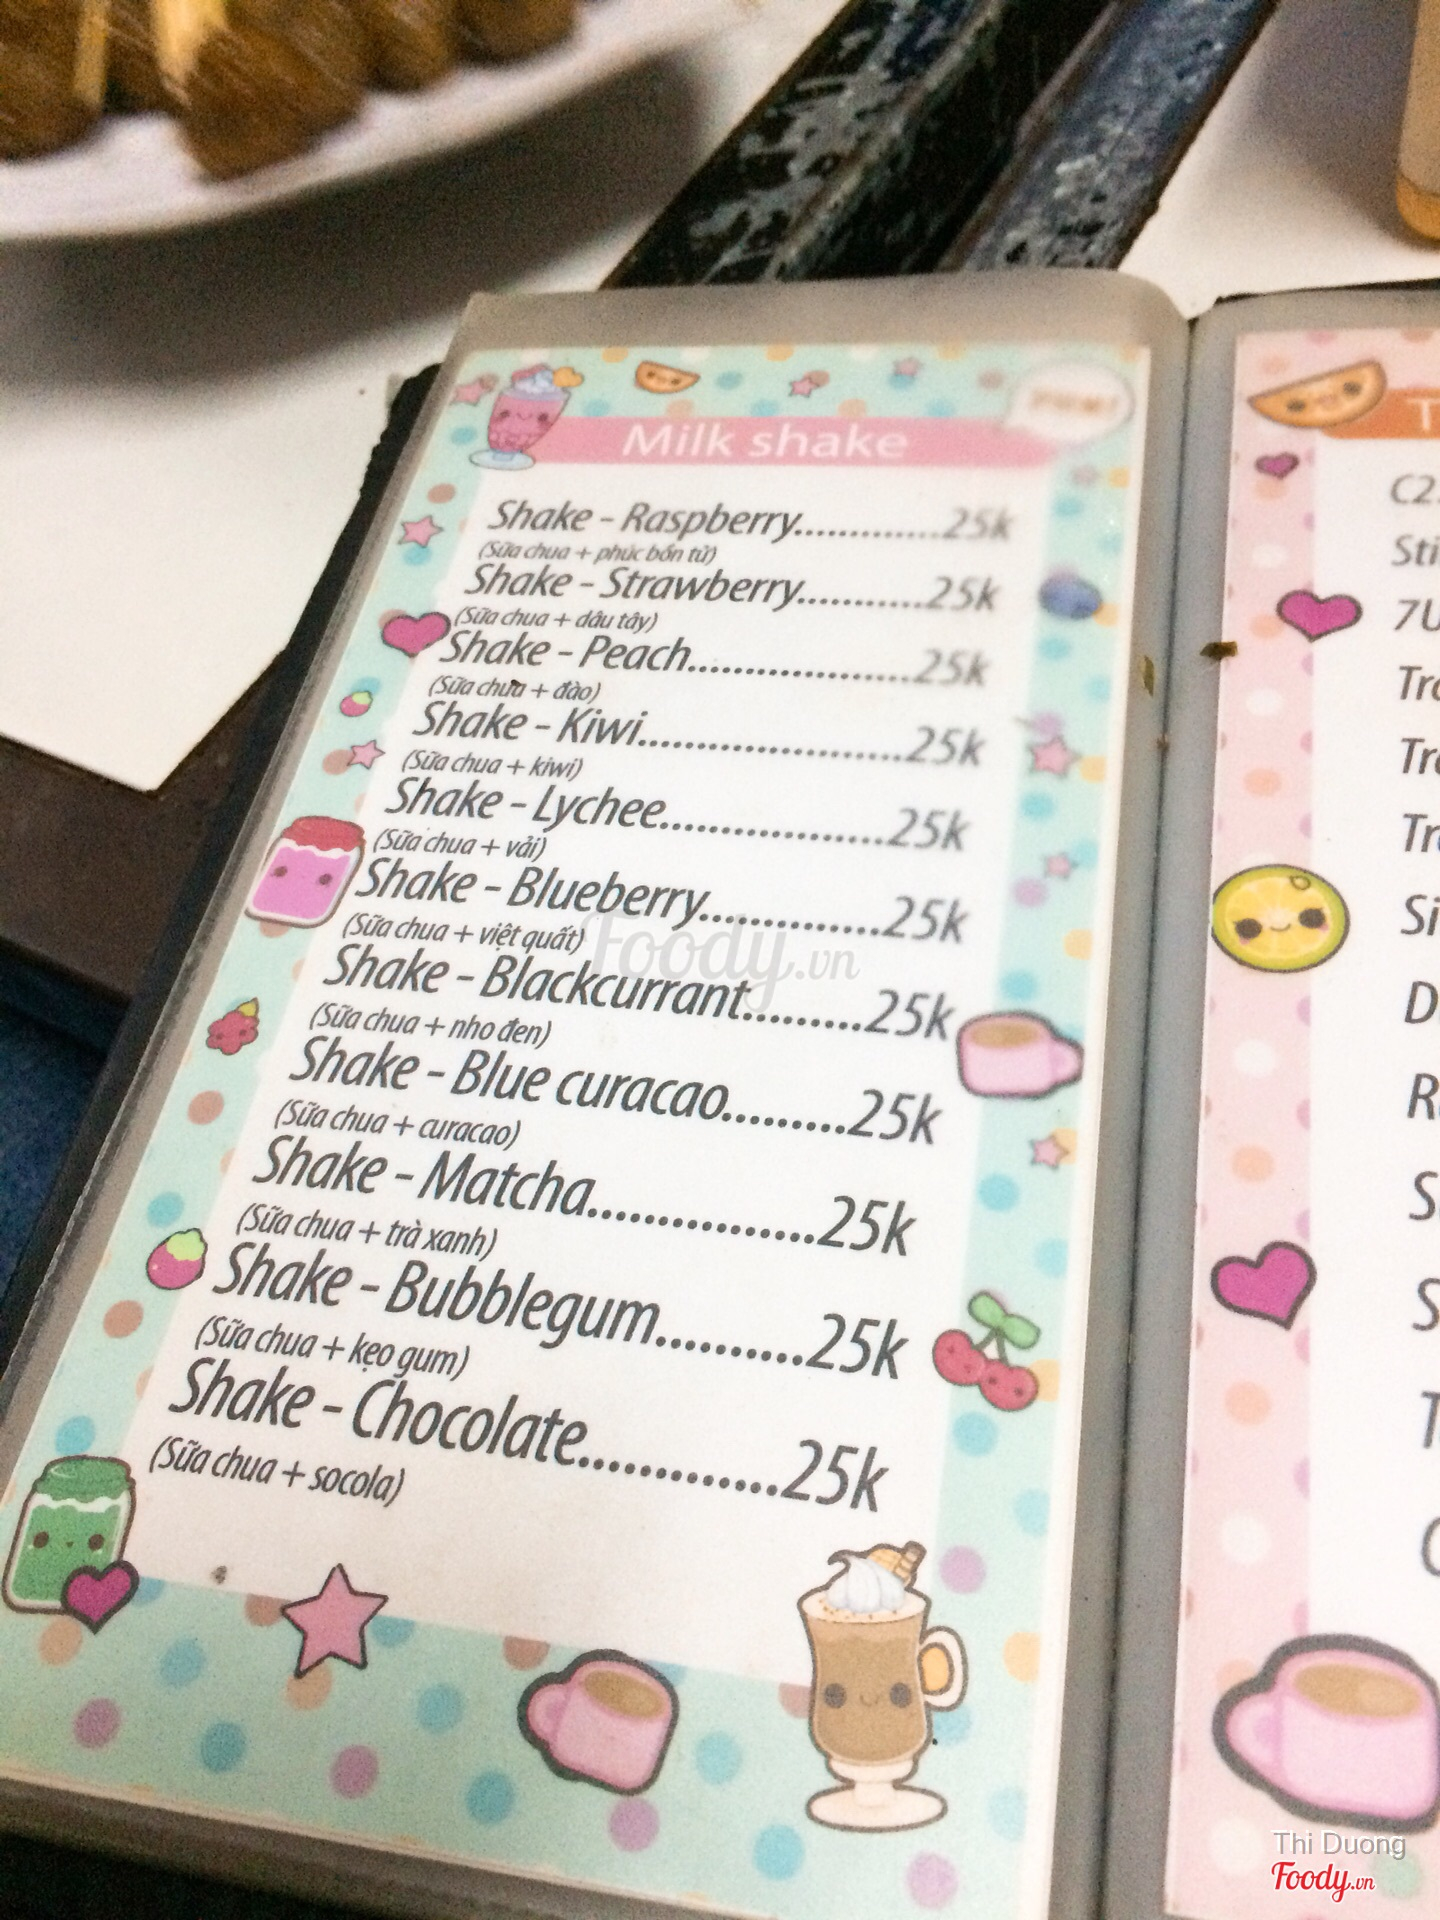 Milk shake
Shake - Raspberry.............25k
(Sữa chua + phúc bồn tử)
Shake - Strawberry............25k
(Sữa chua + dâu tây)
Shake - Peach....................25k
(Sữa chua + đào)
Shake - Kiwi........................25k
(Sữa chua + kiwi)
Shake - Lychee....................25k
(Sữa chua + vải)
Shake - Blueberry...............25k
(Sữa chua + việt quất)
Shake - Blackcurrant.........25k
(Sữa chua + nho đen)
Shake - Blue curacao.........25k
(Sữa chua + curacao)
Shake - Matcha................25k
(Sữa chua + trà xanh)
Shake - Bubblegum..........25k
(Sữa chua + kẹo gum)
Shake - Chocolate.............25k
(Sữa chua + socola)
Foody.vn
7U
Si
Thi Duong
Foody.vn